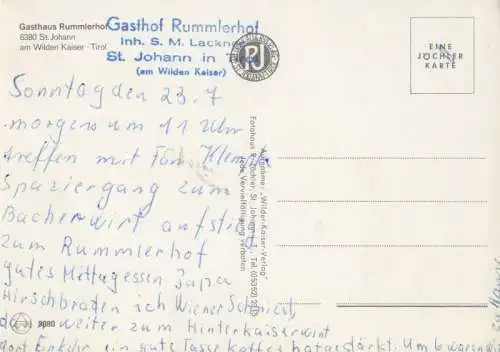 Gasthaus Rummlerhof
6380 St. Johann
am Wilden Kaiser · Tirol
Gasthof Rummlerhof
Inh. S. M. Lackner
St. Johann in Tirol
(am Wilden Kaiser)
PJ
EINE
JÖCHLER
KARTE
Sonntag den 23.7
morgens um 11 Uhr
treffen mit Fam Klempe
Spaziergang zum
Bacherwirt aufstieg
zum Rummlerhof
gutes Mittagessen Papa
Hirschbraden ich Wiener Schnitzl,
da weiter zum Hinterkaiserwirt
dort Einkehr ein gute Tasse Kaffee hat gestärkt. Um
9980
Aufnahme: „Wilder-Kaiser-Verlag"
Fotohaus P. Jöchler, St. Johann Tel. (05352)
jede Vervielfältigung verboten